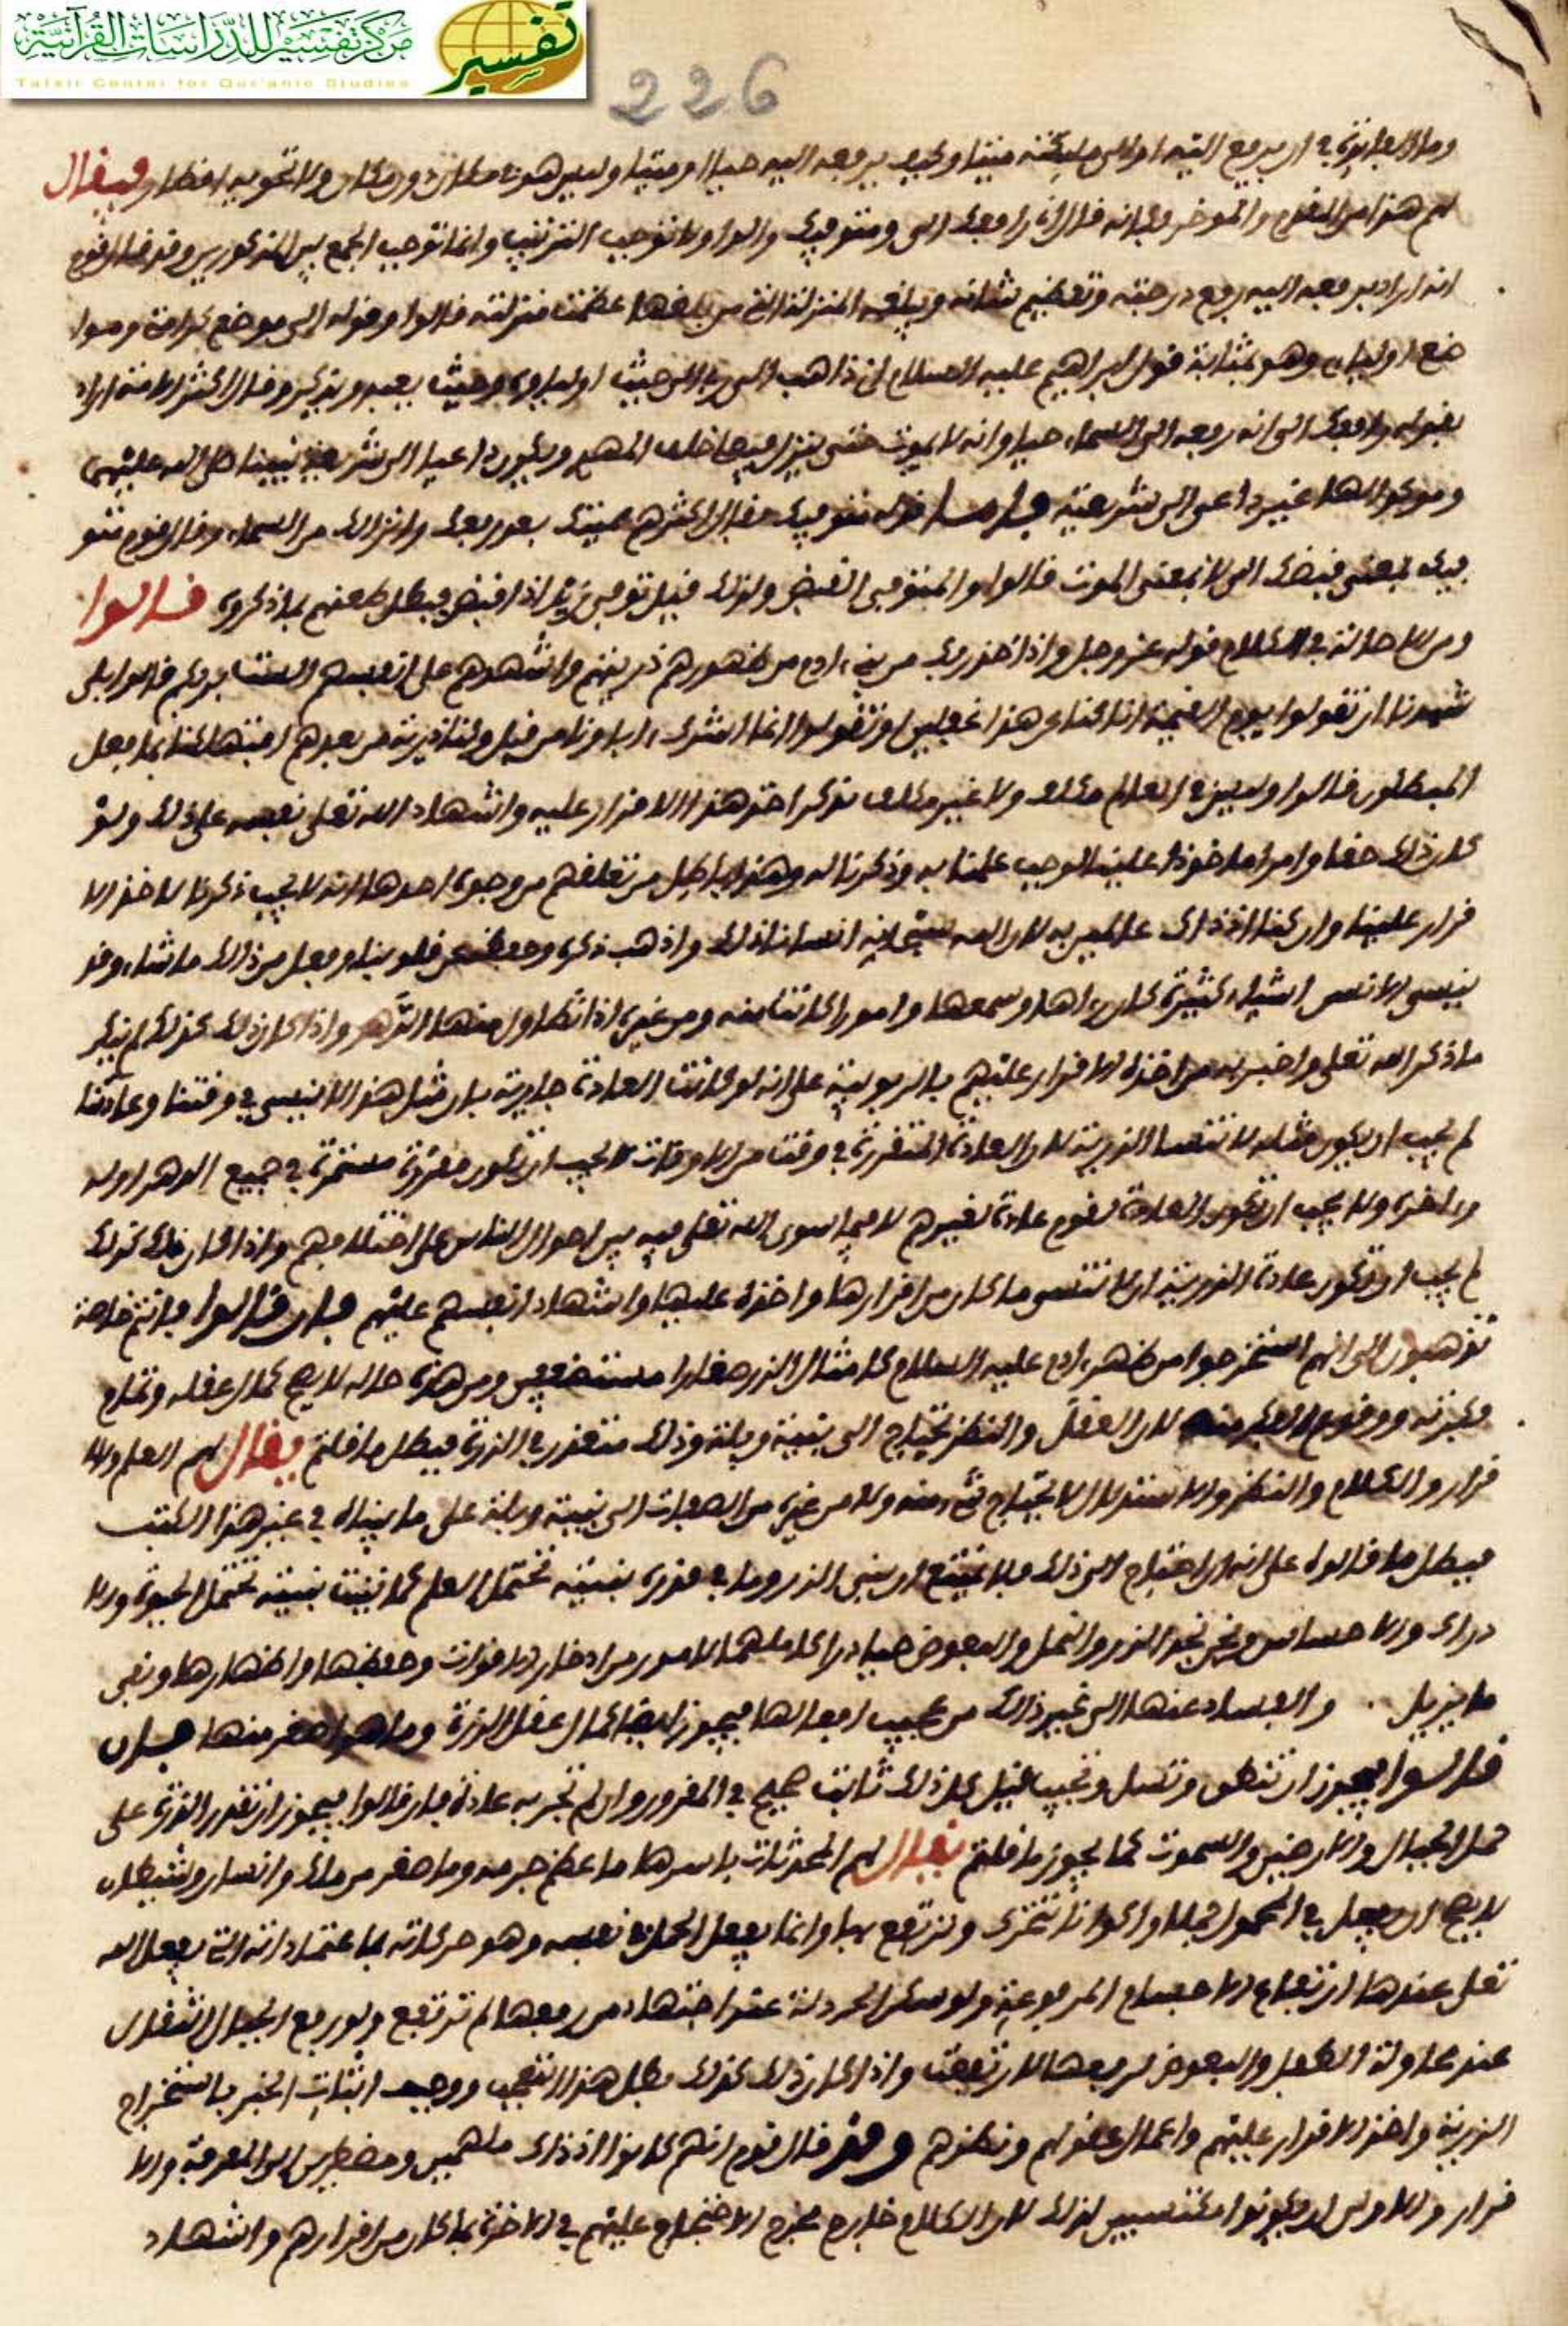 مركز تفسير للدراسات القرآنية
تفسير
Tafsir Center for Qur'anic Studies
226
وما الفائدة في ان يرفع اليه ميتا وكيف يرفعه اليه حيا او ميتا وليس هو في مكان دون مكان ولا تحويه اقطار فيقال
لهم هذا من المقدم والموخر وكانه قال اني رافعك الى ومتوفيك والواو لا توجب الترتيب وانما توجب الجمع بين المذكورين وقد قال قوم
انه اراد برفعه اليه رفع درجته وتعظيم شانه وبلغه المنزلة التي من بلغها عظمت منزلته قالوا وقوله الى موضع كرامتي وموا
ضع اوليائي وهو بمثابة قول ابراهيم عليه السلام اني ذاهب الى ربي الى حيث اوليائي وحيث يعبد ويذكر وقال اكثر الامة اراد
بقوله ورافعك الى انه رفعه الى السماء حيا وانه لا يموت حتى ينزل فيصلى خلف المهدي ويكون داعيا الى شريعة نبينا صلى الله عليهما
وموكدا لها غير داعى الى شريعته فاما قوله متوفيك فقال اكثرهم مميتك بعد رفعك وانزالك من السماء وقال قوم متو
فيك بمعنى قبضك الى لا بمعنى الموت قالوا والمتوفى القبض ولذلك قيل توفى زيد اذا قبض فبطل طعنهم بما ذكروه قالوا
ومن الاحالة في الكلام قوله عز وجل واذ اخذ ربك من بني ادم من ظهورهم ذرياتهم واشهدهم على انفسهم الست بربكم قالوا بلى
شهدنا ان تقولوا يوم القيمة انا كنا عن هذا غفلين او تقولوا انما اشرك اباونا من قبل وكنا ذرية من بعدهم افتهلكنا بما فعل
المبطلون قالوا وليس في العالم مكلف ولا غير مكلف يذكر اخذ هذا الاقرار عليه واشهاد الله تعلى نفسه على ذلك ولو
كان ذلك حقا وامرا ماخوذا علينا لوجب علمنا به وذكرنا له وهذا باطل من تعلقهم من وجوه احدها انه لا يجب ذكرنا لاخذ الا
قرار علينا وان كنا اذ ذاك عالمين به لان الله سبحانه انسانا ذلك واذهب ذكره وحفظه عن قلوبنا وفعل من ذلك ما شاء وقد
ينسى الانس اشياء كثيرة كان راها وسمعها وامورا كانت منه ومن غيره اذا تطاول منها الدهر واذا كان ذلك كذلك لم ينكر
ما ذكر الله تعلى واخبر به من اخذه الاقرار عليهم بالربوبية على انه لو كانت العادة جارية بان مثل هذا لا ينسى في وقتنا وعادتنا
لم يجب ان يكون مثله لا تنساه الذرية لان العادة المتقررة في وقت من الاوقات لا يجب ان تكون مقررة مستمرة في جميع الدهر اوله
واخره ولا يجب ان تكون العادة لقوم عادة لغيرهم لا فيما سوى الله تعلى فيه بين احوال الناس على اختلافهم واذا كان ذلك كذلك
لم يجب ان تكون عادة الذرية ان لا تنسى ما كان من اقرارها واخذه عليها واشهاد انفسهم عليهم فان قالوا فانتم خاصة
تذهبون الى انهم استخرجوا من ظهر ادم عليه السلام كامثال الذر صغارا مستضعفين ومن هذه حاله لا يصح كمال عقله وتمام
فكرته ووقوع العلم منه لان العقل والنظر يحتاج الى بنية وبلة وذلك متعذر في الذرة فبطل ما قلتم يقال لهم العلم والا
قرار والكلام والنظر والاستدلال لا يحتاج شيء منه ولا من غيره من الصفات الى بنية وبلة على ما بيناه في غير هذا الكتب
فبطل ما قالوا على انه ان احتاج الى ذلك فلا يمتنع ان يبنى الذر وما في قدره بنية تحتمل العلم كما تبنيت بنية تحتمل الحيوة والا
دراك والاحساس ونحن نجد الذر والنمل والبعوض حيا دراكا ملهما لامور من ادخار الاقوات وحفظها واظهارها ونفى
ما يزيل .. والفساد عنها الى غير ذلك من عجيب افعالها فيجوز ايضا كمال عقل الذرة وما هو اصغر منها فان
قالوا فيجوز ان تنطق وتسل وتجيب قيل كل ذلك ثابت صحيح في المقدور وان لم تجر به عادة فان قالوا فيجوز ان تقدر الذرة على
حمل الجبال والارضين والسموت كما يجوز ما قلتم يقال لهم المحدثات باسرها ما عظم جرمه وما صغر من ملك وانسان وشيطان
لا يصح ان يفعل في المحمول حملا واكوانا تتحرك وترتفع بها وانما يفعل الحادث في نفسه وهو حركاته بها اعتماداته التي يفعل الله
تعلى عندها ارتفاع الاجسام المرفوعة ولو سكن الخردلة عند اجتهاد من رفعها لم ترتفع ولو رفع الجبال الثقال
عند محاولة الطفل والبعوض لرفعها لارتفعت واذا كان ذلك كذلك بطل هذا التعجب ووجب اثبات الخبر باستخراج
الذرية واخذ الاقرار عليهم واكمال عقولهم ونظرهم وقد قال قوم انهم كانوا اذ ذاك ملهمين ومضطرين الى المعرفة والا
قرار والاولى ان يكونوا مكتسبين لذلك لان الكلام خارج مخرج الاحتجاج عليهم في الاخرة بما كان من اقرارهم واشهاد